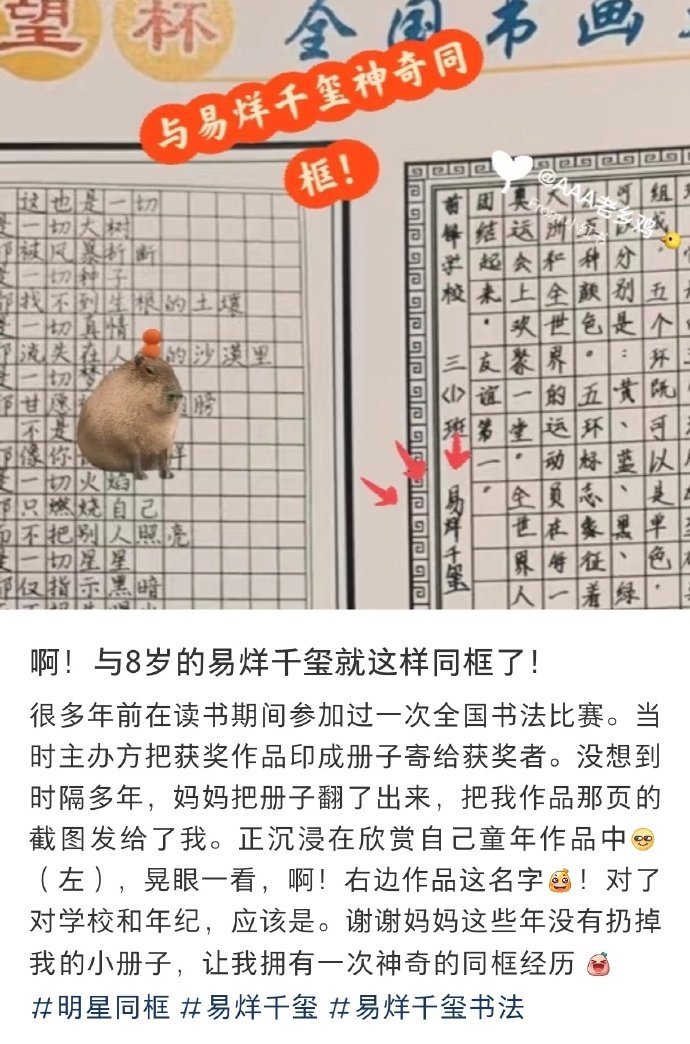 望杯 全国书画
与易烊千玺神奇同
框!
这也是一切
是一切大树
都被风暴折断
是一切种子
都找不到生根的土壤
是一切真情
都流失在人 的沙漠里
是一切梦
都甘愿 膀
不是
都像你 样
是一切火焰
都只燃烧自己
而不把别人照亮
是一切星星
都仅指示黑暗
组成，五个环既可以是单色，
可以分别是：黄、蓝、黑、绿
五种颜色。五环标志象征着
大洲和全世界的运动员在每一
奥运会上欢聚一堂。全世界人
团结起来。友谊第一。
前锋学校 三〈1〉班 易烊千玺
@AAA老乡鸡
From小红书
啊！与8岁的易烊千玺就这样同框了！
很多年前在读书期间参加过一次全国书法比赛。当
时主办方把获奖作品印成册子寄给获奖者。没想到
时隔多年，妈妈把册子翻了出来，把我作品那页的
截图发给了我。正沉浸在欣赏自己童年作品中
（左），晃眼一看，啊！右边作品这名字！对了
对学校和年纪，应该是。谢谢妈妈这些年没有扔掉
我的小册子，让我拥有一次神奇的同框经历
#明星同框 #易烊千玺 #易烊千玺书法